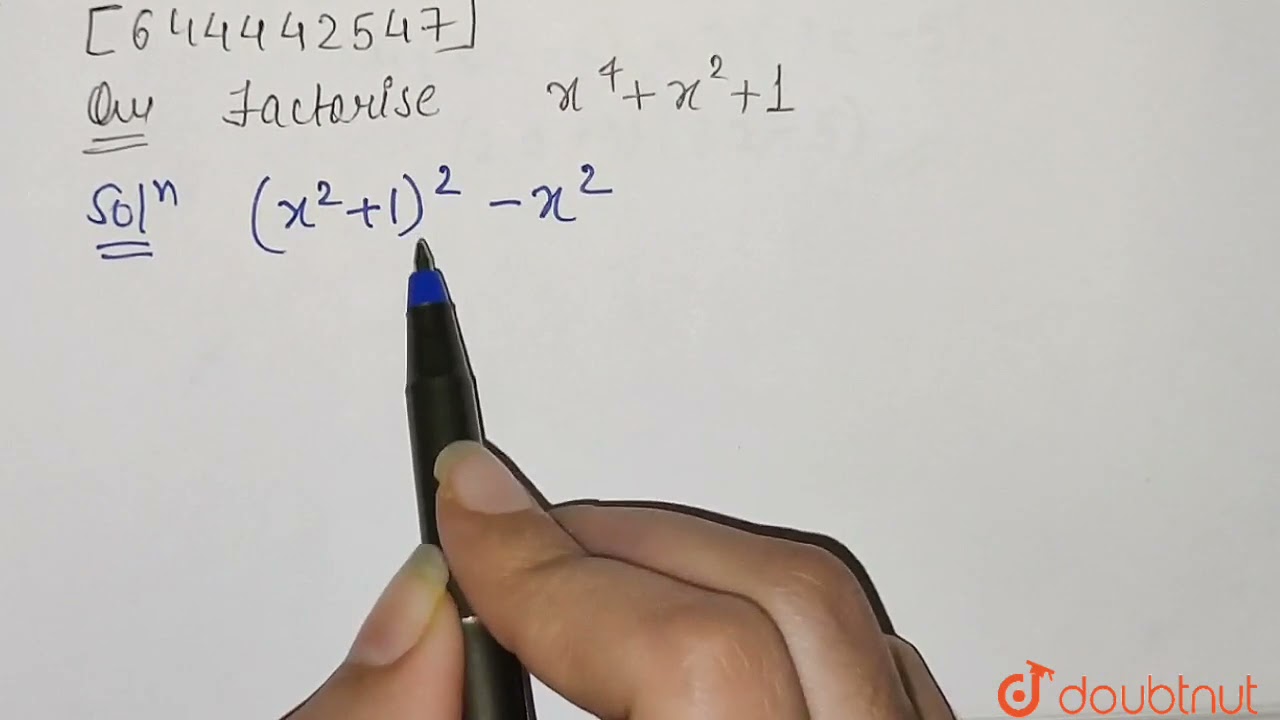 [644442547]
Qu Factorise x⁴+x²+1
Solⁿ (x²+1)² -x²
doubtnut